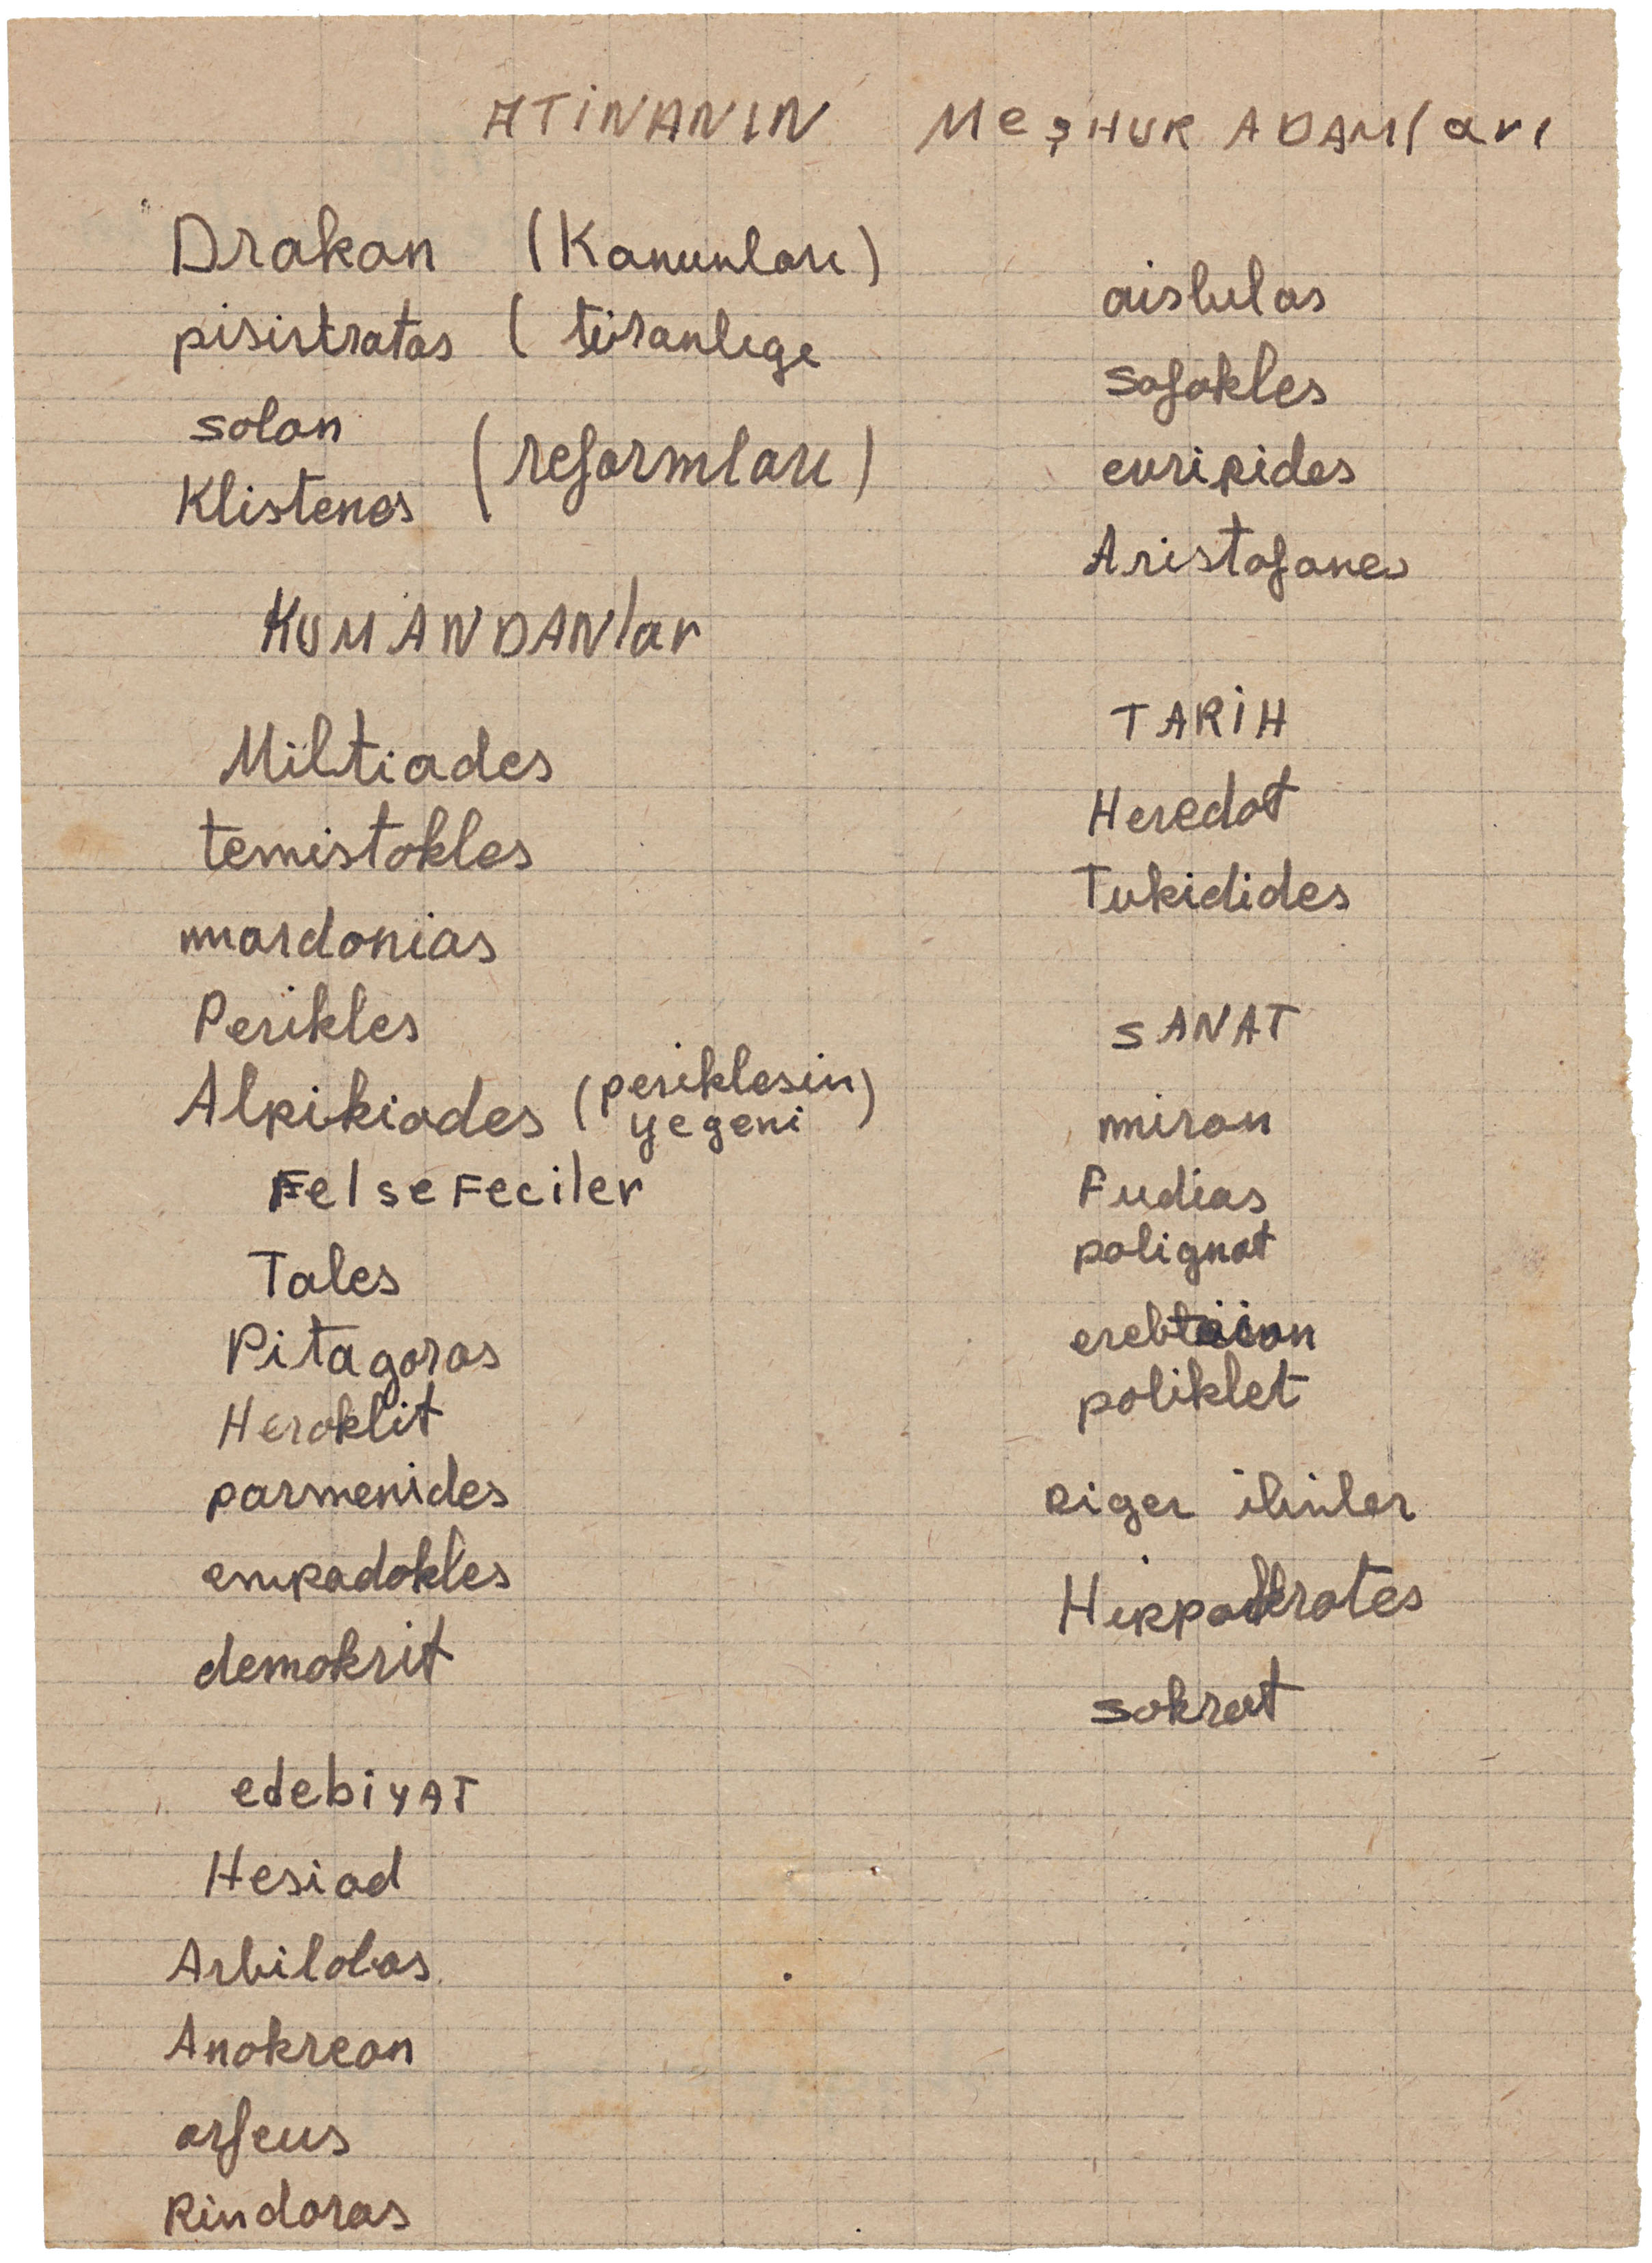 ATİNANIN MeşHUR ADAMları
Drakon (Kanunları)
pisistratos (türanlıgı
solon
Klistenes (reformları)
KUMANDANlar
Miltiades
temistokles
mardonios
Perikles
Alpikiades (periklesin yegeni)
FelseFeciler
Tales
Pitagoras
Heroklit
parmenides
empadokles
demokrit
edebiYAT
Hesiod
Arhilohos
Anokreon
orfeus
Pindoros
aishulos
sofokles
euripides
Aristofanes
TARİH
Heredot
Tukidides
SANAT
miron
Fudias
polignot
poliklet
Diger ilimler
Hippokrates
sokrat